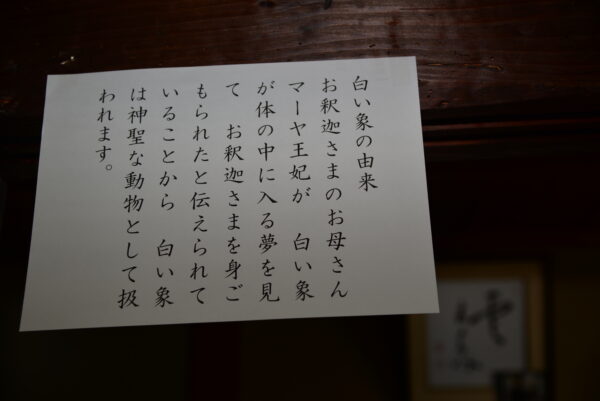 白い象の由来
お釈迦さまのお母さん
マーヤ王妃が　白い象
が体の中に入る夢を見
て　お釈迦さまを身ご
もられたと伝えられて
いることから　白い象
は神聖な動物として扱
われます。